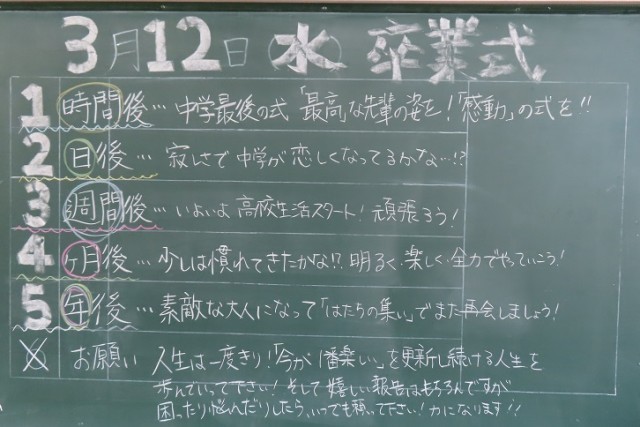 3月12日 水 卒業式
1時間後…中学最後の式「最高」な先輩の姿を!「感動」の式を!!
2日後…寂しさで中学が恋しくなってるかな…!?
3週間後…いよいよ高校生活スタート!頑張ろう!
4ヶ月後…少しは慣れてきたかな!?明るく楽しく全力でやっていこう!
5年後…素敵な大人になって「はたちの集い」でまた再会しましょう!
お願い 人生は一度きり!「今が1番楽しい」を更新し続ける人生を
歩んでいって下さい!そして嬉しい報告はもちろんですが
困ったり悩んだりしたら、いつでも頼って下さい!力になります!!